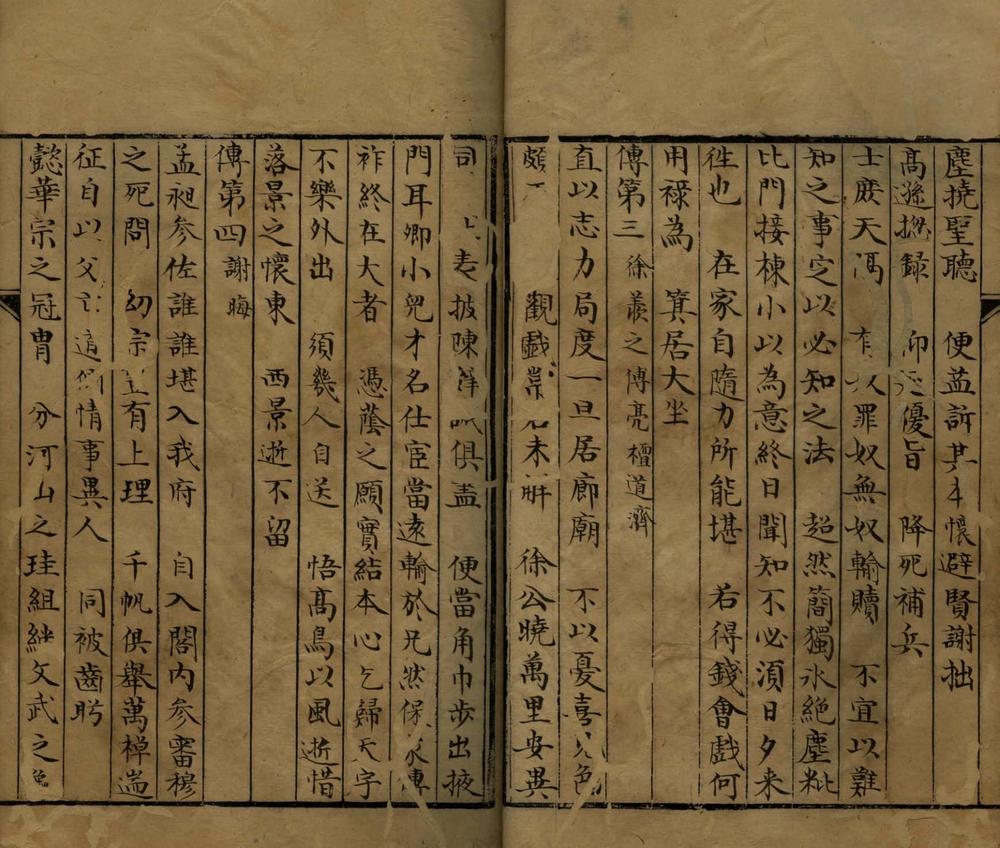 塵撓聖聽　便益訴其本懷避賢謝拙
高遜撫錄　仰　優旨　降死補兵
士庶天隔　有　奴罪奴無奴輸贖　不宜以難
知之事定以必知之法　超然簡獨氷絶塵粃
比門接棟小以為意終日聞知不必須日夕来
徃也　在家自隨力所能堪　若得錢會戲何
用禄為　箕居大坐
傳第三徐羨之傅亮檀道濟
直以志力局度一旦居廊廟　不以憂喜見色
頗　觀戲常　未解　徐公曉萬里安異
司　　表披陳　　俱盡　便當角巾步出掖
門耳卿小兒才名仕宦當遠輸於兄然保家傳
祚終在大者　憑蔭之願實結本心乞歸天字
不樂外出　須幾人自送　悟高鳥以風逝惜
落景之懷東　西景逝不留
傳第四謝晦
孟昶參佐誰誰堪入我府　自入閤内參審穆
之死問　幼宗　有上理　千帆俱舉萬棹遄
征自以父　　情事異人　同被齒盻
懿華宗之冠冑　分河山之珪組紲文武之龜